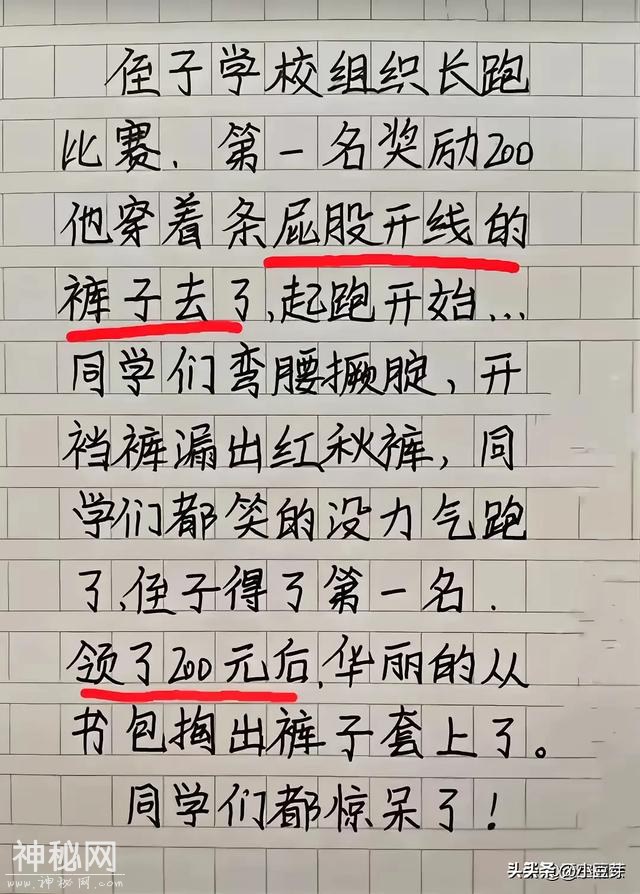 侄子学校组织长跑
比赛.第一名奖励200
他穿着条屁股开线的
裤子去了,起跑开始...
同学们弯腰撅腚,开
裆裤漏出红秋裤,同
学们都笑的没力气跑
了,侄子得了第一名.
领了200元后,华丽的从
书包掏出裤子套上了。
同学们都惊呆了!
神秘网
www.shenmiw.com
头条@小豆芽